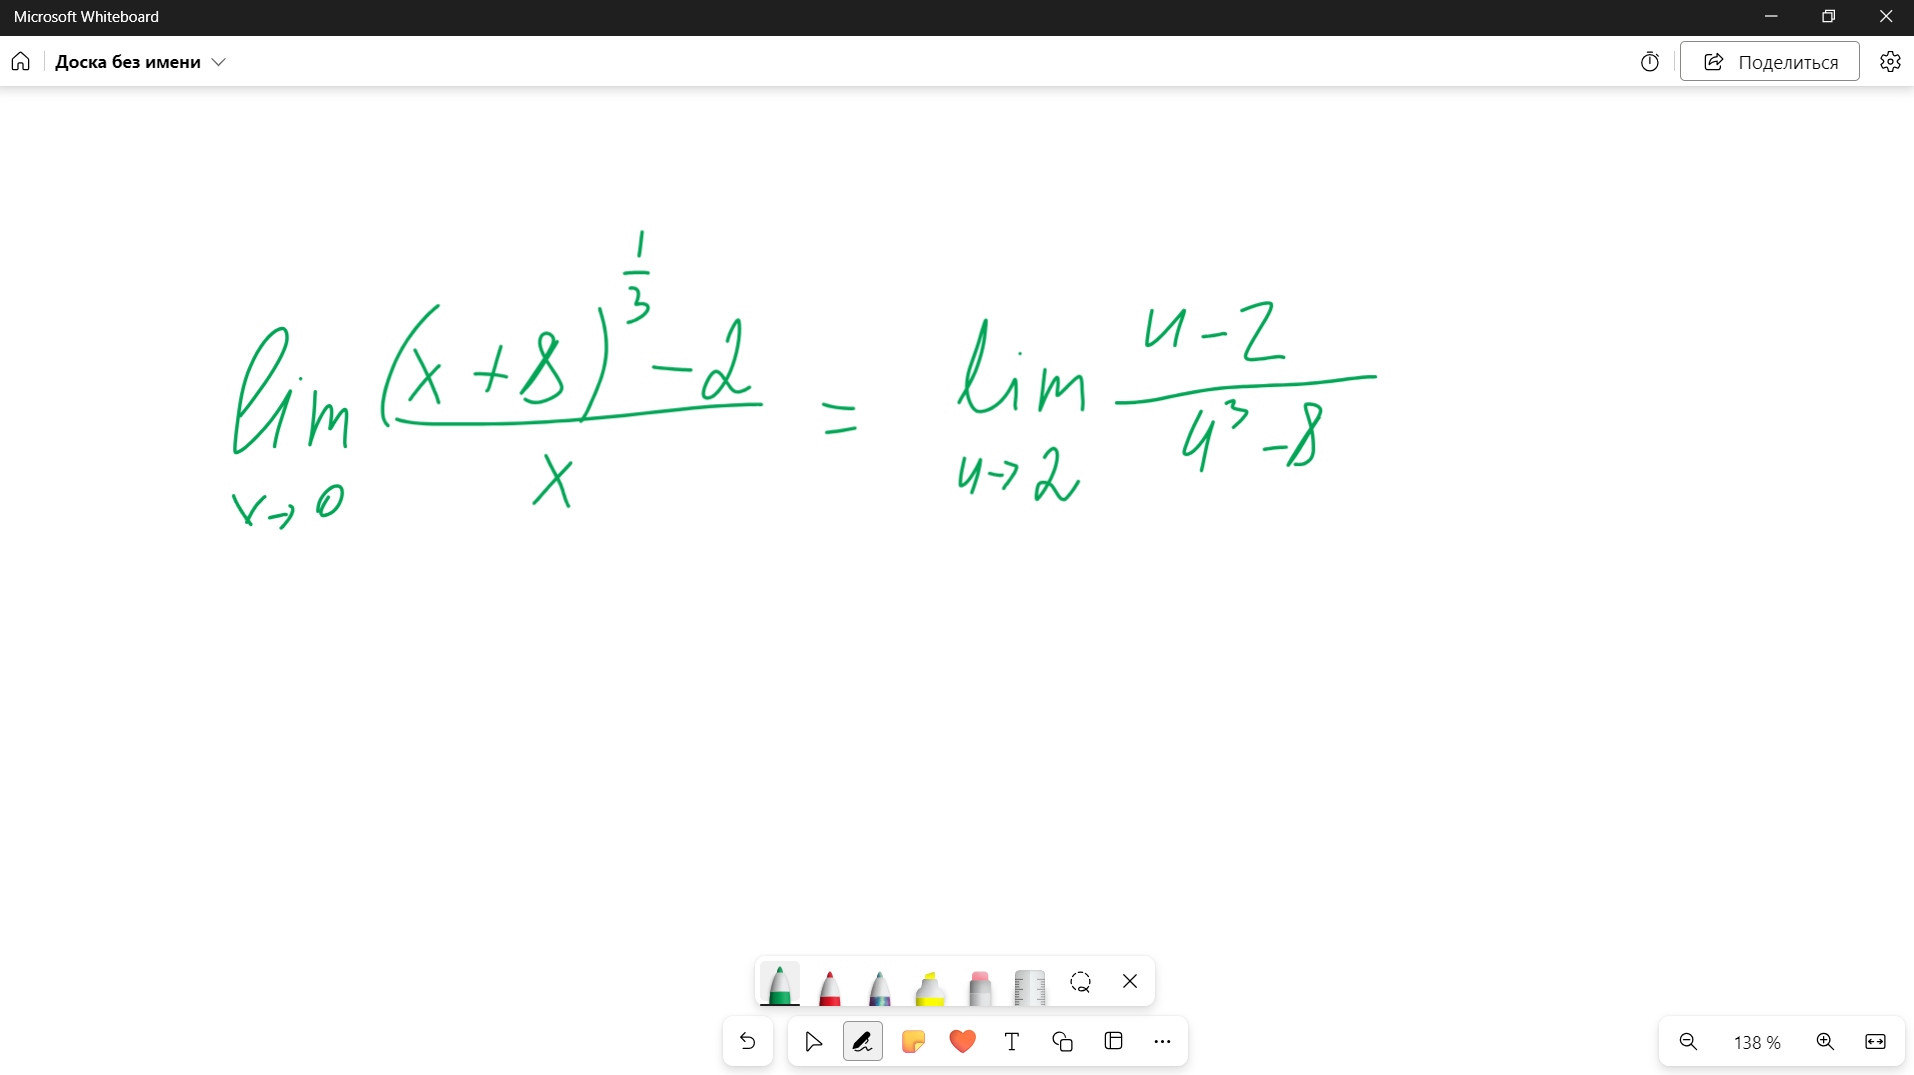 Microsoft Whiteboard
Доска без имени
Поделиться
lim (x+8)^(1/3) - 2 / x = lim u-2 / u³-8
x→0 u→2
138 %